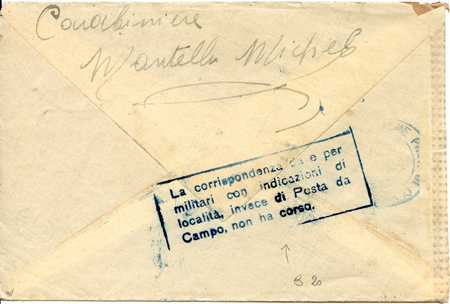 Carabiniere
Martella Michele
La corrispondenza da e per
militari con indicazioni di
località, invece di Posta da
Campo, non ha corso.
B 20